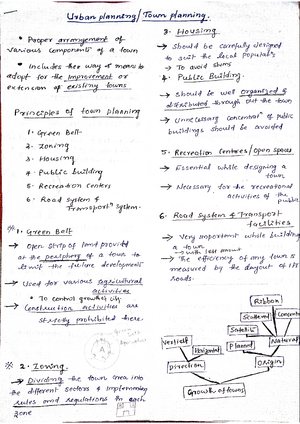 Urban planning/Town planning.
• Proper arrangement of
various components of a town
• Includes the way & means to
adopt for the improvement or
extension of existing towns
Principles of town planning
1. Green Belt
2. Zoning
3. Housing
4. Public building
5. Recreation centers
6. Road System &
Transportn System.
1. Green Belt
→ Open strip of land provided
at the periphery of a town to
limit the future development
→ Used for various agricultural
activities
* To control growth of city
→ Construction activities are
strictly prohibited here.
2. Zoning.
→ Dividing the town area into
the different sectors & implementing
rules and regulations in each
zone
3. Housing
→ Should be carefully designed
to suit the local populatn
→ To avoid slums
4. Public Building.
→ Should be well organized &
distributed through out the town
→ Unnecessary concentratn of public
buildings should be avoided
5. Recreation Centres/Open spaces
→ Essential while designing a
town
→ Necessary for the recreational
activities of the public
6. Road System & Transport
facilities
→ Very important while building
a town
→ the efficiency of any town is
measured by the layout of its
roads.
Ribbon
Scattered
Concentric
Satellite
Vertical
Horizontal
Planned
Natural
Direction
Origin
Growth of towns